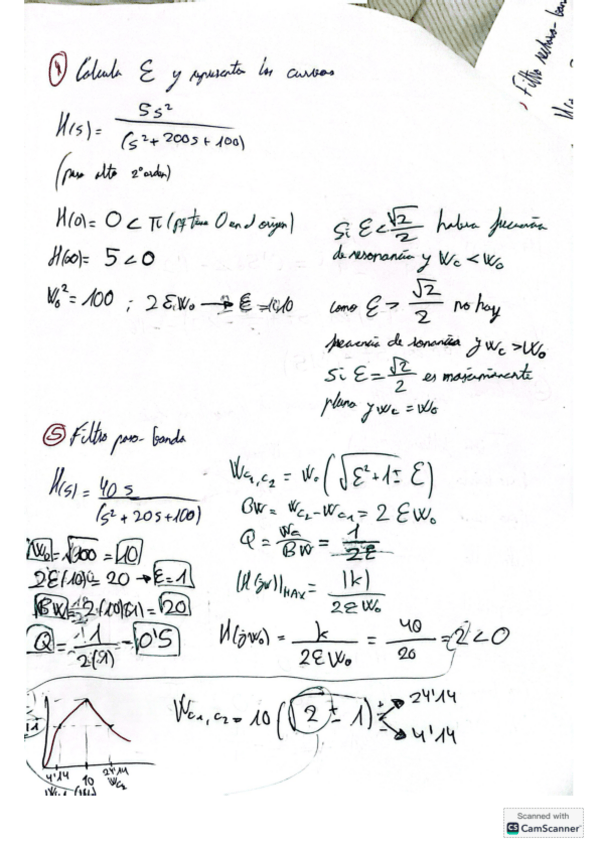 ④ Calcula ε y representa las curvas
H(s) = 5s² / (s² + 200s + 100)
(paso alto 2º orden)
H(0) = 0 < π (pq tiene 0 en el origen)
H(∞) = 5 < 0
W₀² = 100 ; 2εW₀ → ε = 10
Si ε < √2/2 habra frecuencia
de resonancia y Wc < W₀
como ε > √2/2 no hay
frecuencia de resonancia y Wc > W₀
Si ε = √2/2 es maximamente
plano y Wc = W₀
⑤ Filtro paso-banda
H(s) = 40s / (s² + 20s + 100)
W₀ = √100 = 10
2ε(10) = 20 → ε = 1
BW = 2(10)(1) = 20
Q = 1 / 2(1) = 0'5
Wc₁,c₂ = W₀ (√ε²+1 ± ε)
BW = Wc₂ - Wc₁ = 2εW₀
Q = W₀ / BW = 1 / 2ε
|H(jw)|MAX = |k| / 2εW₀
H(jw₀) = k / 2εW₀ = 40 / 20 = 2 < 0
Wc₁,c₂ = 10 (√2 ± 1)
24'14
4'14
4'14 10 24'14
Wc₂
Filtro rechazo-ban
Scanned with
CS CamScanner